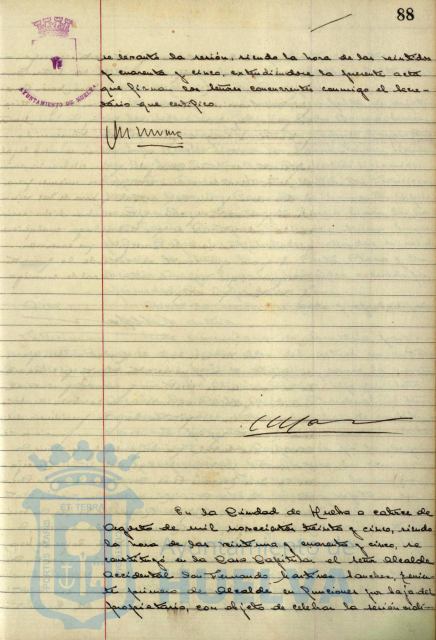 88
AYUNTAMIENTO DE HUELVA
se levantó la sesión, siendo la hora de las veintidos
y cuarenta y cinco, extendiéndose la presente acta
que firman los señores concurrentes conmigo el Secre-
tario que certifico.
En la Ciudad de Huelva a catorce de
Agosto de mil novecientos treinta y cinco, siendo
la hora de las veintiuna y cuarenta y cinco, se
constituyó en la Casa Capitular el señor Alcalde
Accidental don Fernando Martínez Sánchez, tenien-
te primero de Alcalde en funciones por baja del
propietario, con objeto de celebrar la sesión ordi-